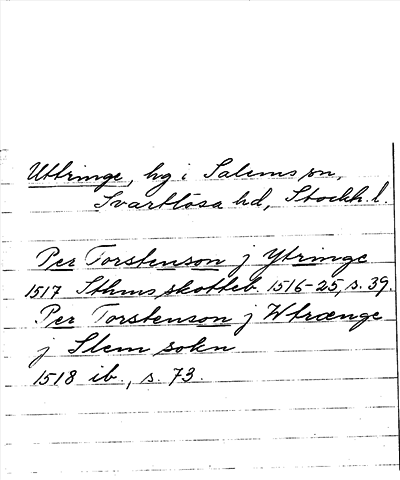 Uttringe, hg i Salems sn,
Svartlösa hd, Stockh. l.
Per Torstenson j Ytringe
1517 Sthms skotteb. 1516-25, s. 39.
Per Torstenson j Wtrænge
j Slem sokn
1518 ib., s. 73.